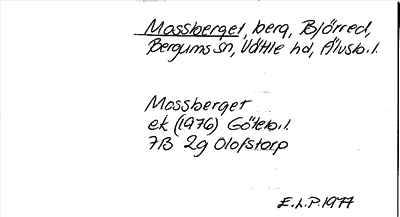 Mossberget, berg, Björred,
Bergums sn, Vättle hd, Älvsb.l.
Mossberget
ek (1976) Göteb.l.
7B 2g Olofstorp
E.L.P. 1977